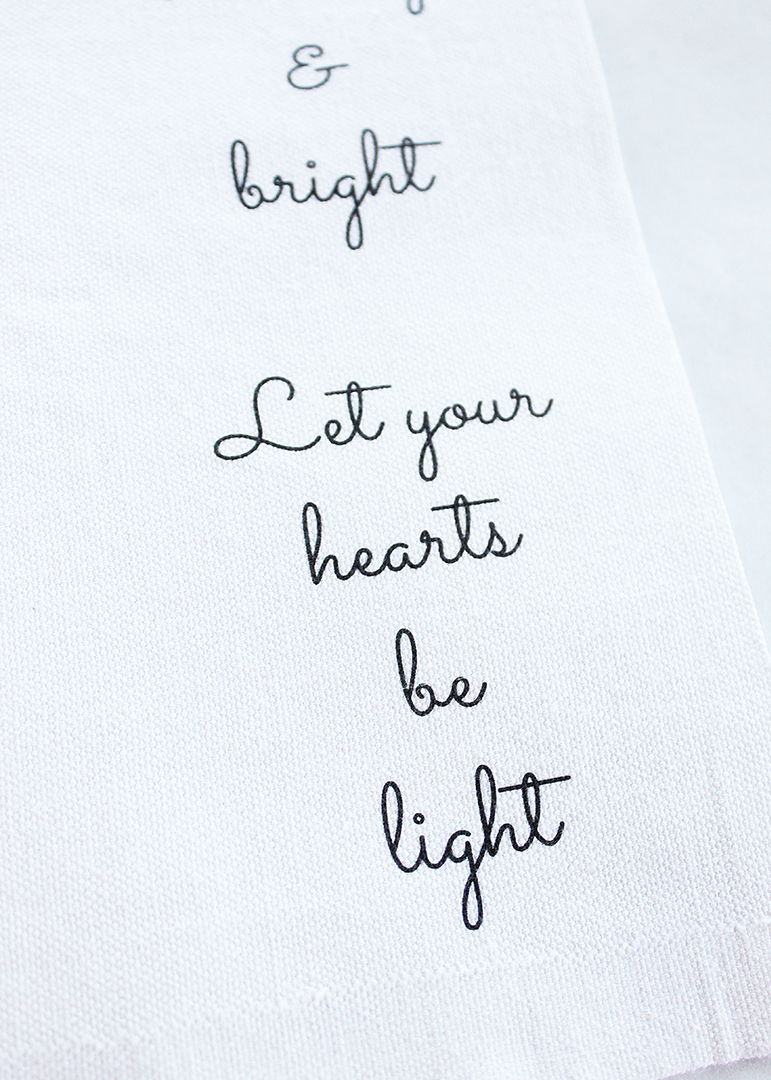 &
bright
Let your
hearts
be
light